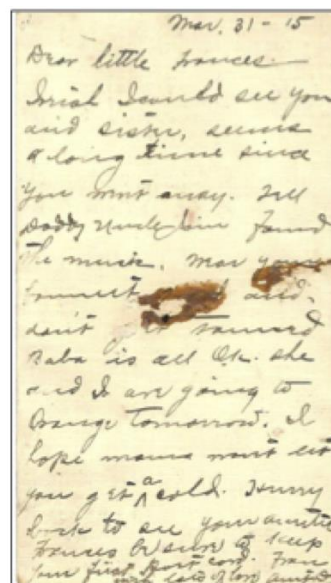 Mar. 31 - 15
Dear little Frances.
Wish I could see you
and sister, seems
a long time since
you went away. Tell
Daddy Uncle Jim found
the music. Wear your
bonnet and
don't get tanned
Baba is all O.K. she
and I are going to
Orange tomorrow. I
hope mama wont let
you get a cold. Hurry
back to see your auntie
Frances be sure & keep
your first post card. Frances
lots of love auntie